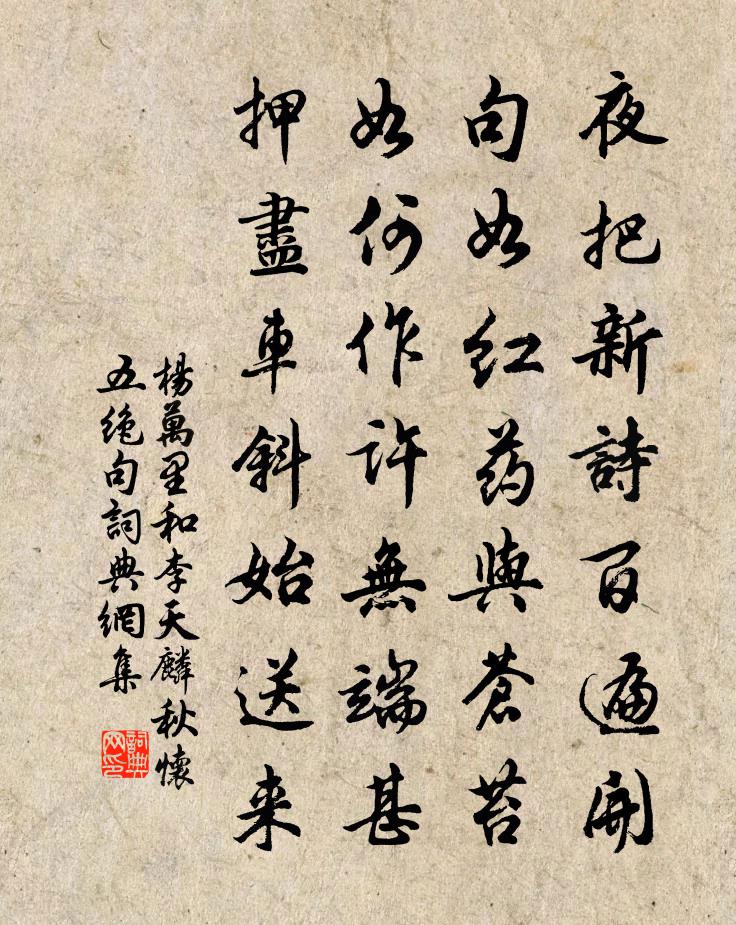 夜把新詩百遍開
句如红药與蒼苔
如何作許無端甚
押盡車斜始送来
楊萬里和李天麟秋懷
五絶句詞典網集
詞典
网印